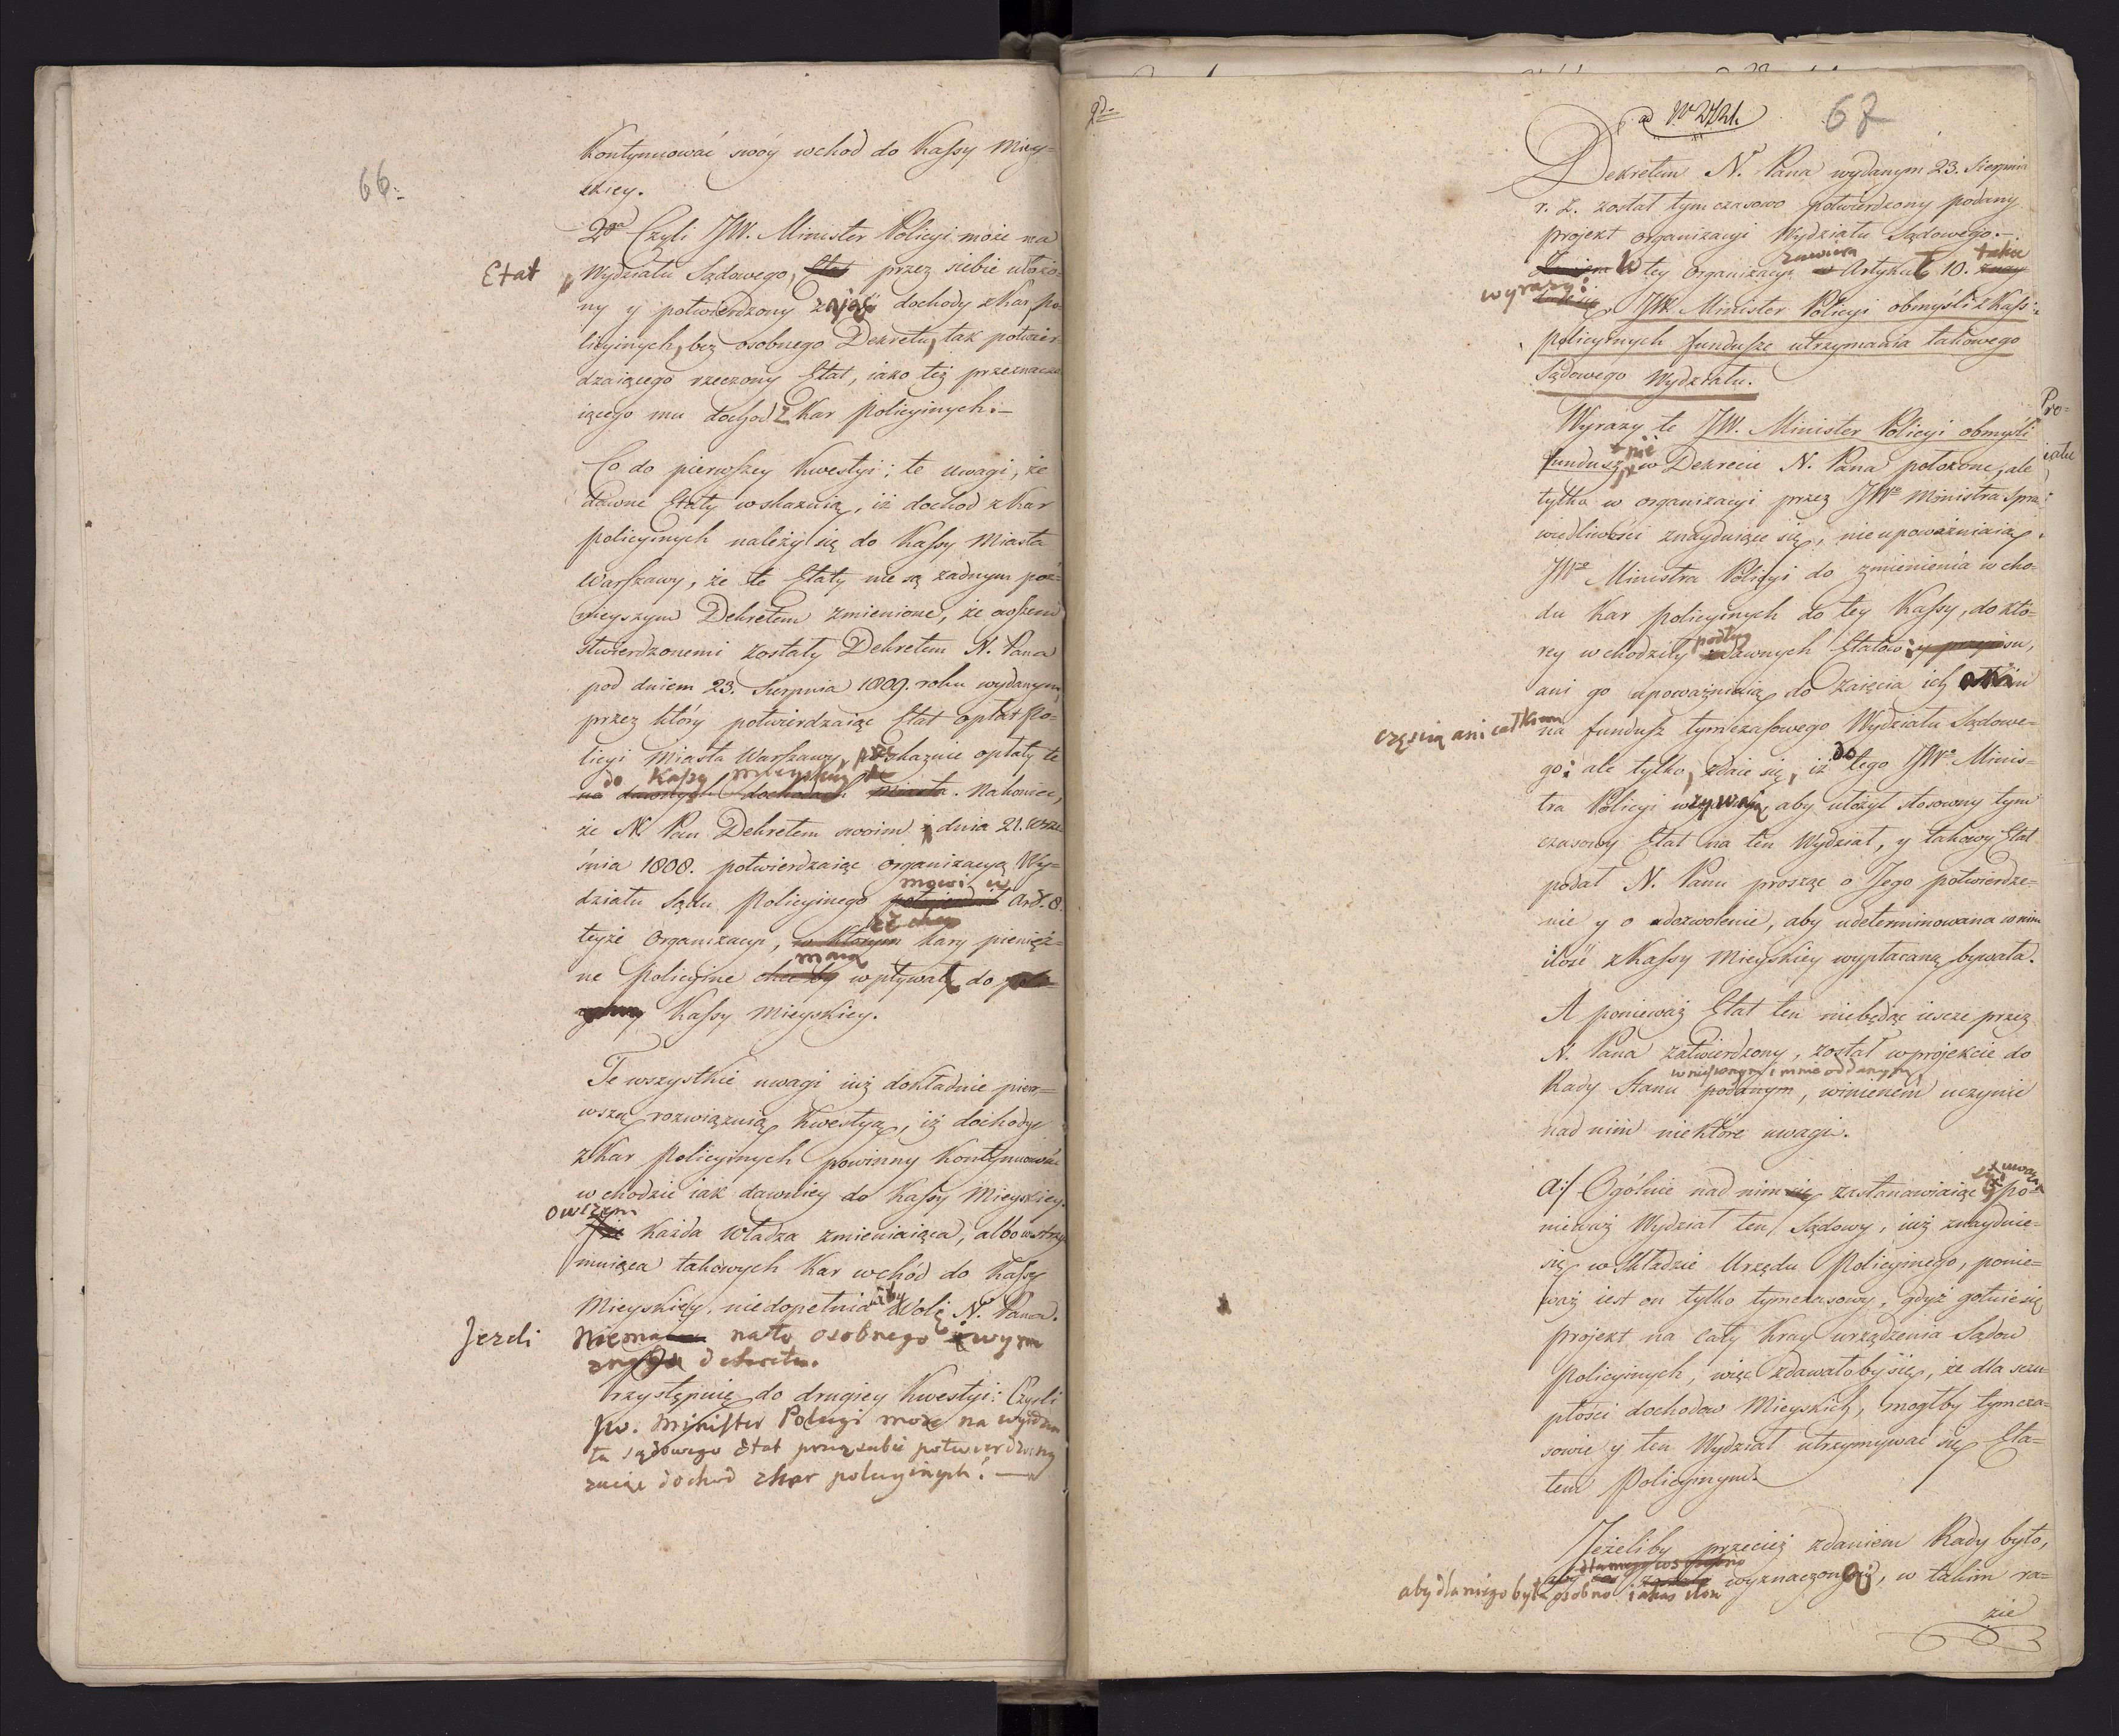 66.
Kontynuować swóy wchod do Kassy Miey=
skiey.
2ga Czyli JW. Minister Policyi może na
Etat
Wydziału Sądowego, Etat przez siebie ułożo=
ny y potwierdzony zająć dochody z Kar po=
licyinych, bez osobnego Dekretu, tak potwier=
dzaiącego rzeczony Etat, iako też przeznacza=
iącego mu dochod z Kar policyinych.—
Co do pierwszey Kwestyi: te uwagi, że
dawne Etaty wskazuią, iż dochod z Kar
policyinych należy się do Kassy Miasta
Warszawy, że te Etaty nie są żadnym poź=
nieyszym Dekretem zmienione, że owszem
stwierdzonemi zostały Dekretem N. Pana
pod dniem 23. Sierpnia 1809. roku wydanym,
przez który potwierdzaiąc Etat opłat Po=
licyi Miasta Warszawy, przekazuie opłaty te
do Kassy mieyskiey
na dawnych dochodach miasta. Nakoniec,
że N. Pan Dekretem swoim z dnia 21. Wrze=
śnia 1808. potwierdzaiąc organizacyą Wy=
działu Sądu Policyinego mowi w Art. 8.
teyże Organizacyi, w którym że chce kary pienięż=
ne policyine chce by maią wpływały do
Kassy Mieyskiey.
Te wszystkie uwagi iuż dokładnie pier=
wszą rozwiązuią Kwestyą, iż dochody
z Kar Policyinych powinny kontynuować
wchodzić iak dawniey do Kassy Mieyskiey.
owszem
Każda Władza zmieniaiąca, albo wstrzy=
muiąca takowych Kar wchód do Kassy
Mieyskiey, niedopełnia by Woli No Pana.
Jeżeli
Niema na to osobnego wyra
Dekretu.
Przystępuię do drugiey Kwestyi: Czyli
Jw. Minister Policyi może na wydzia
łu sądowego Etat przez siebie potwierdzony
zaiąć dochod z kar policyinych? —
2do
ad No 2721.
67
Dekretem No Pana wydanym 23. Sierpnia
r. z. został tymczasowo potwierdzony podany
projekt organizacyi Wydziału Sądowego.—
W tey organizacyi zawiera w Artykuł 10. takie
wyrazy:
JW. Minister Policyi obmyśli z Kass
policyinych fundusze utrzymania takowego
Sądowego Wydziału.
Wyrazy te JW. Minister Policyi obmyśli
fundusz, nie w Dekrecie N. Pana położone, ale
tylko w organizacyi przez JWo Ministra Spra=
wiedliwości znayduiące się, nieupoważniaią
JWo Ministra Policyi do zmienienia wcho=
du Kar policyinych do tey Kassy, do któ=
rey wchodziły podług dawnych Etatów; y przepisu,
ani go upoważniaią do zaięcia ich
częscią ani całkiem
na fundusz tymczasowego Wydziału Sądowe=
go: ale tylko, zdaie się, iż do tego JWo Minis=
tra Policyi wzywaią, aby ułożył stosowny tym
czasowy Etat na ten Wydział, y takowy Etat
podał N. Panu prosząc o Jego potwierdze=
nie y o dozwolenie, aby udeterminowana w nim
ilość z Kassy Mieyskiey wypłacaną bywała.
A ponieważ Etat ten niebędąc iescze przez
N. Pana zatwierdzony, został w projekcie do
wniesionym i mnie oddanym,
Rady Stanu podanym, winienem uczynić
nad nim niektóre uwagi.
a:/ Ogólnie nad nim się zastanawiaiąc się uważa po=
nieważ Wydział ten, Sądowy, iuż znayduie=
się w składzie Urzędu Policyinego, ponie=
waż iest on tylko tymczasowy, gdyż gotuie się
projekt na cały Kray urządzenia Sądów
Policyinych, więc zdawałoby się, że dla szczu=
płości dochodow Mieyskich, mogłby tymcza=
sowie y ten Wydział utrzymywać się Eta=
tem Policyinym.
Jeżeliby przecież zdaniem Rady było,
aby dla niego była osobno iakaś ilość
wyznaczoną, w takim ra=
zie
Pro=